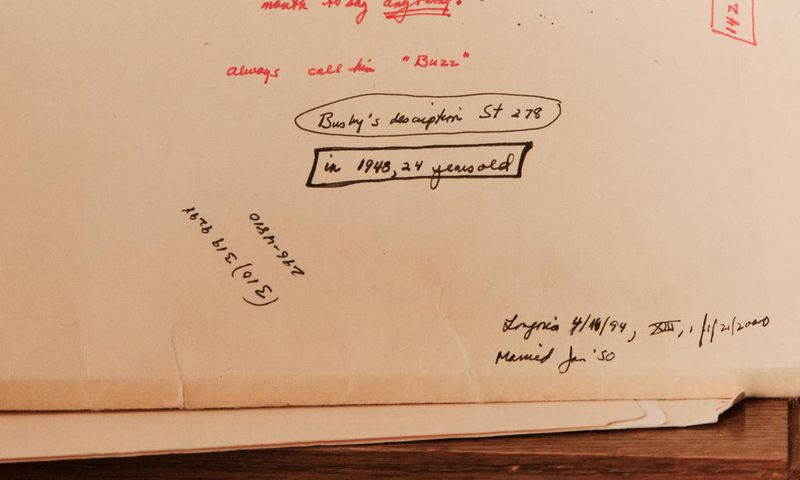 month to say anything."
142
always call him "Buzz"
Busby's description St 278
in 1948, 24 years old
(310) 319 9294
246-4810
Longoria 4/16/94, XIII, 1/1/21/2000
Married Jan '50